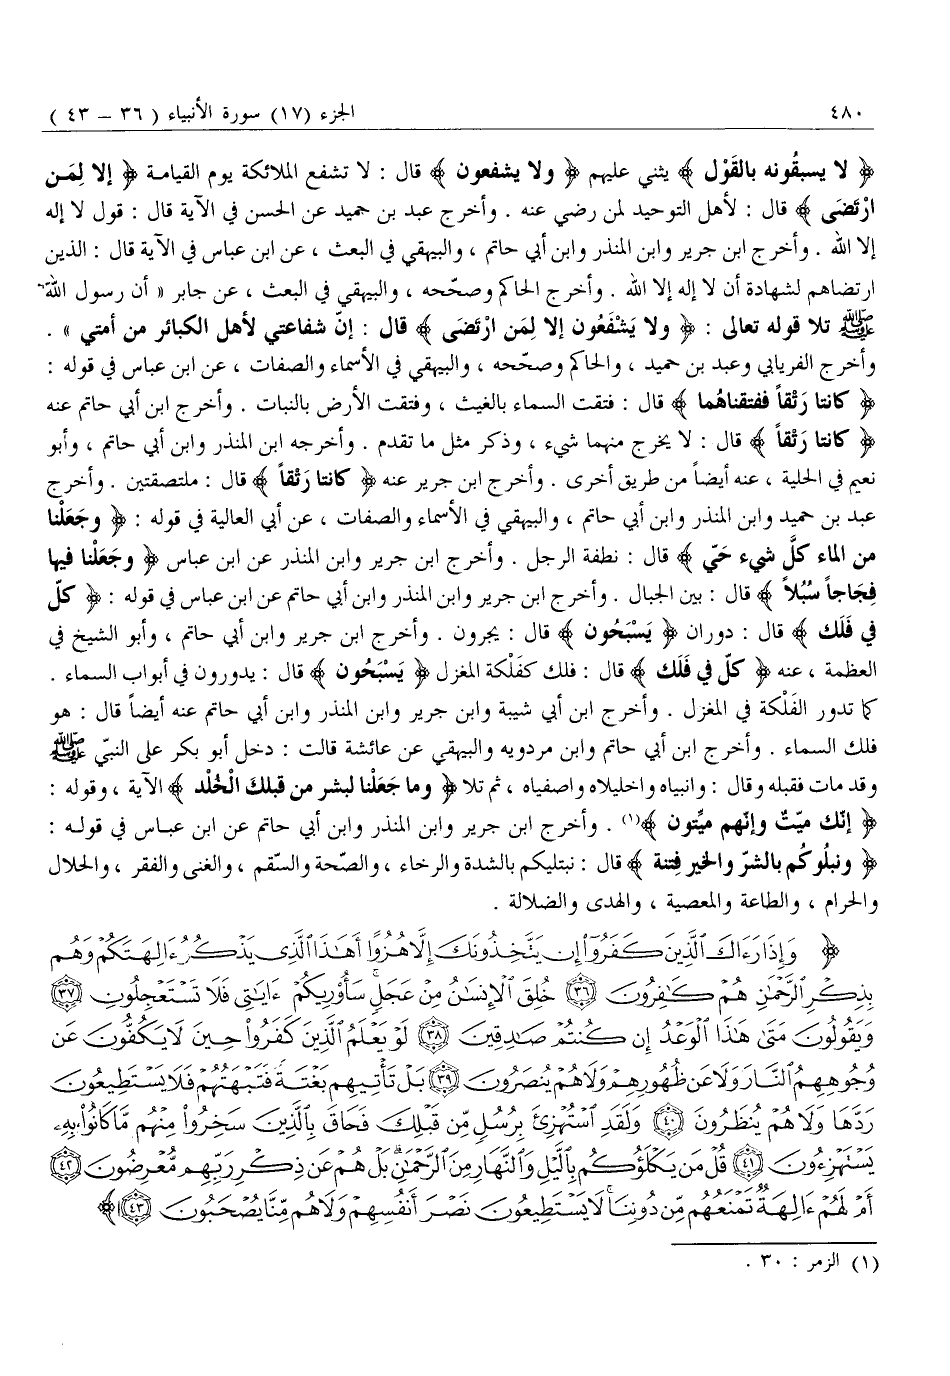 ٤٨٠ الجزء (١٧) سورة الأنبياء ( ٣٦ - ٤٣ )
﴿ لا يسبقُونه بالقَوْل ﴾ يثني عليهم ﴿ ولا يشفعون ﴾ قال : لا تشفع الملائكة يوم القيامة ﴿ إلا لِمَن
ارْتَضَى ﴾ قال : لأهل التوحيد لمن رضي عنه . وأخرج عبد بن حميد عن الحسن في الآية قال : قول لا إله
إلا الله . وأخرج ابن جرير وابن المنذر وابن أبي حاتم ، والبيهقي في البعث ، عن ابن عباس في الآية قال : الذين
ارتضاهم لشهادة أن لا إله إلا الله . وأخرج الحاكم وصحّحه ، والبيهقي في البعث ، عن جابر « أن رسول الله
ﷺ تلا قوله تعالى : ﴿ ولا يَشْفَعُون إلا لِمَن ارْتَضَى ﴾ قال : إنّ شفاعتي لأهل الكبائر من أمتي » .
وأخرج الفريابي وعبد بن حميد ، والحاكم وصحّحه ، والبيهقي في الأسماء والصفات ، عن ابن عباس في قوله :
﴿ كانتا رَتْقاً ففتقناهُما ﴾ قال : فتقت السماء بالغيث ، وفتقت الأرض بالنبات . وأخرج ابن أبي حاتم عنه
﴿ كانتا رَتْقاً ﴾ قال : لا يخرج منهما شيء ، وذكر مثل ما تقدم . وأخرجه ابن المنذر وابن أبي حاتم ، وأبو
نعيم في الحلية ، عنه أيضاً من طريق أخرى . وأخرج ابن جرير عنه ﴿ كانتا رَتْقاً ﴾ قال : ملتصقتين . وأخرج
عبد بن حميد وابن المنذر وابن أبي حاتم ، والبيهقي في الأسماء والصفات ، عن أبي العالية في قوله : ﴿ وجَعَلْنا
من الماء كلَّ شيء حَيّ ﴾ قال : نطفة الرجل . وأخرج ابن جرير وابن المنذر عن ابن عباس ﴿ وجَعَلْنا فيها
فِجَاجاً سُبُلاً ﴾ قال : بين الجبال . وأخرج ابن جرير وابن المنذر وابن أبي حاتم عن ابن عباس في قوله : ﴿ كلّ
في فَلَك ﴾ قال : دوران ﴿ يَسْبَحُون ﴾ قال : يجرون . وأخرج ابن جرير وابن أبي حاتم ، وأبو الشيخ في
العظمة ، عنه ﴿ كلّ في فَلَك ﴾ قال : فلك كفَلْكة المغزل ﴿ يَسْبَحُون ﴾ قال : يدورون في أبواب السماء .
كما تدور الفَلْكة في المغزل . وأخرج ابن أبي شيبة وابن جرير وابن المنذر وابن أبي حاتم عنه أيضاً قال : هو
فلك السماء . وأخرج ابن أبي حاتم وابن مردويه والبيهقي عن عائشة قالت : دخل أبو بكر على النبيّ ﷺ
وقد مات فقبله وقال : وانبياه واخليلاه واصفياه ، ثم تلا ﴿ وما جَعَلْنا لبشر من قبلكَ الْخُلْد ﴾ الآية ، وقوله :
﴿ إنّك ميّتٌ وإنّهم ميِّتون ﴾(١) . وأخرج ابن جرير وابن المنذر وابن أبي حاتم عن ابن عباس في قوله :
﴿ ونبلُوكُم بالشرّ والخير فِتنة ﴾ قال : نبتليكم بالشدة والرخاء ، والصّحة والسّقم ، والغنى والفقر ، والحلال
والحرام ، والطاعة والمعصية ، والهدى والضلالة .
﴿ وَإِذَا رَءَاكَ ٱلَّذِينَ كَفَرُوٓا۟ إِن يَتَّخِذُونَكَ إِلَّا هُزُوًا أَهَٰذَا ٱلَّذِى يَذْكُرُ ءَالِهَتَكُمْ وَهُم
بِذِكْرِ ٱلرَّحْمَٰنِ هُمْ كَٰفِرُونَ ٣٦ خُلِقَ ٱلْإِنسَٰنُ مِنْ عَجَلٍ ۚ سَأُو۟رِيكُمْ ءَايَٰتِى فَلَا تَسْتَعْجِلُونِ ٣٧
وَيَقُولُونَ مَتَىٰ هَٰذَا ٱلْوَعْدُ إِن كُنتُمْ صَٰدِقِينَ ٣٨ لَوْ يَعْلَمُ ٱلَّذِينَ كَفَرُوا۟ حِينَ لَا يَكُفُّونَ عَن
وُجُوهِهِمُ ٱلنَّارَ وَلَا عَن ظُهُورِهِمْ وَلَا هُمْ يُنصَرُونَ ٣٩ بَلْ تَأْتِيهِم بَغْتَةً فَتَبْهَتُهُمْ فَلَا يَسْتَطِيعُونَ
رَدَّهَا وَلَا هُمْ يُنظَرُونَ ٤٠ وَلَقَدِ ٱسْتُهْزِئَ بِرُسُلٍ مِّن قَبْلِكَ فَحَاقَ بِٱلَّذِينَ سَخِرُوا۟ مِنْهُم مَّا كَانُوا۟ بِهِۦ
يَسْتَهْزِءُونَ ٤١ قُلْ مَن يَكْلَؤُكُم بِٱلَّيْلِ وَٱلنَّهَارِ مِنَ ٱلرَّحْمَٰنِ ۗ بَلْ هُمْ عَن ذِكْرِ رَبِّهِم مُّعْرِضُونَ ٤٢
أَمْ لَهُمْ ءَالِهَةٌ تَمْنَعُهُم مِّن دُونِنَا ۚ لَا يَسْتَطِيعُونَ نَصْرَ أَنفُسِهِمْ وَلَا هُم مِّنَّا يُصْحَبُونَ ٤٣ ﴾
(١) الزمر : ٣٠ .